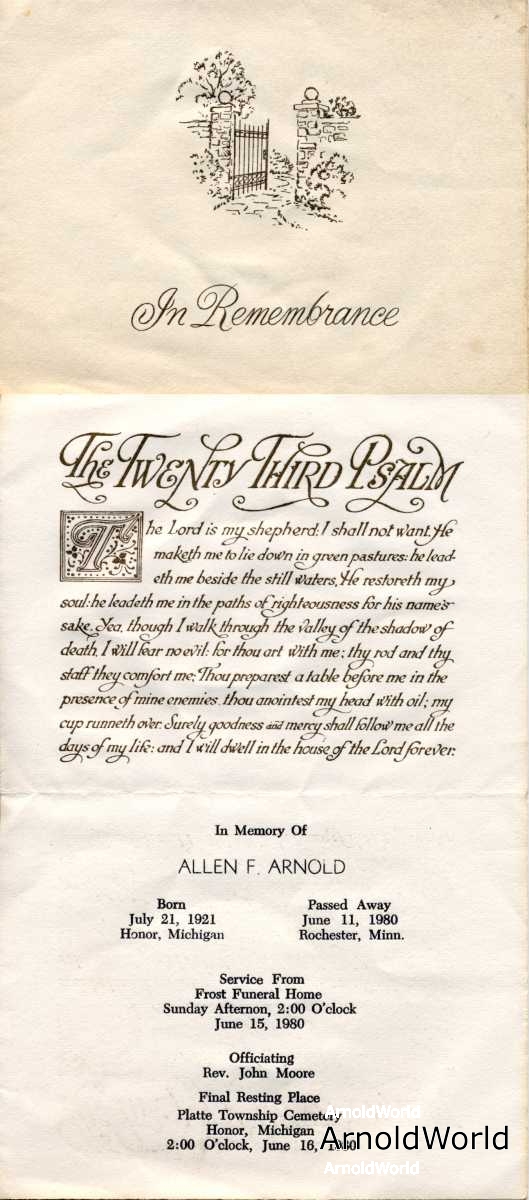 In Remembrance
The Twenty Third Psalm
The Lord is my shepherd; I shall not want. He
maketh me to lie down in green pastures: he lead-
eth me beside the still waters. He restoreth my
soul: he leadeth me in the paths of righteousness for his name's
sake. Yea, though I walk through the valley of the shadow of
death, I will fear no evil: for thou art with me; thy rod and thy
staff they comfort me; Thou preparest a table before me in the
presence of mine enemies. thou anointest my head with oil; my
cup runneth over. Surely goodness and mercy shall follow me all the
days of my life: and I will dwell in the house of the Lord forever.
In Memory Of
ALLEN F. ARNOLD
Born Passed Away
July 21, 1921 June 11, 1980
Honor, Michigan Rochester, Minn.
Service From
Frost Funeral Home
Sunday Afternon, 2:00 O'clock
June 15, 1980
Officiating
Rev. John Moore
Final Resting Place
Platte Township Cemetery
Honor, Michigan
2:00 O'clock, June 16, 1980
ArnoldWorld
ArnoldWorld
ArnoldWorld